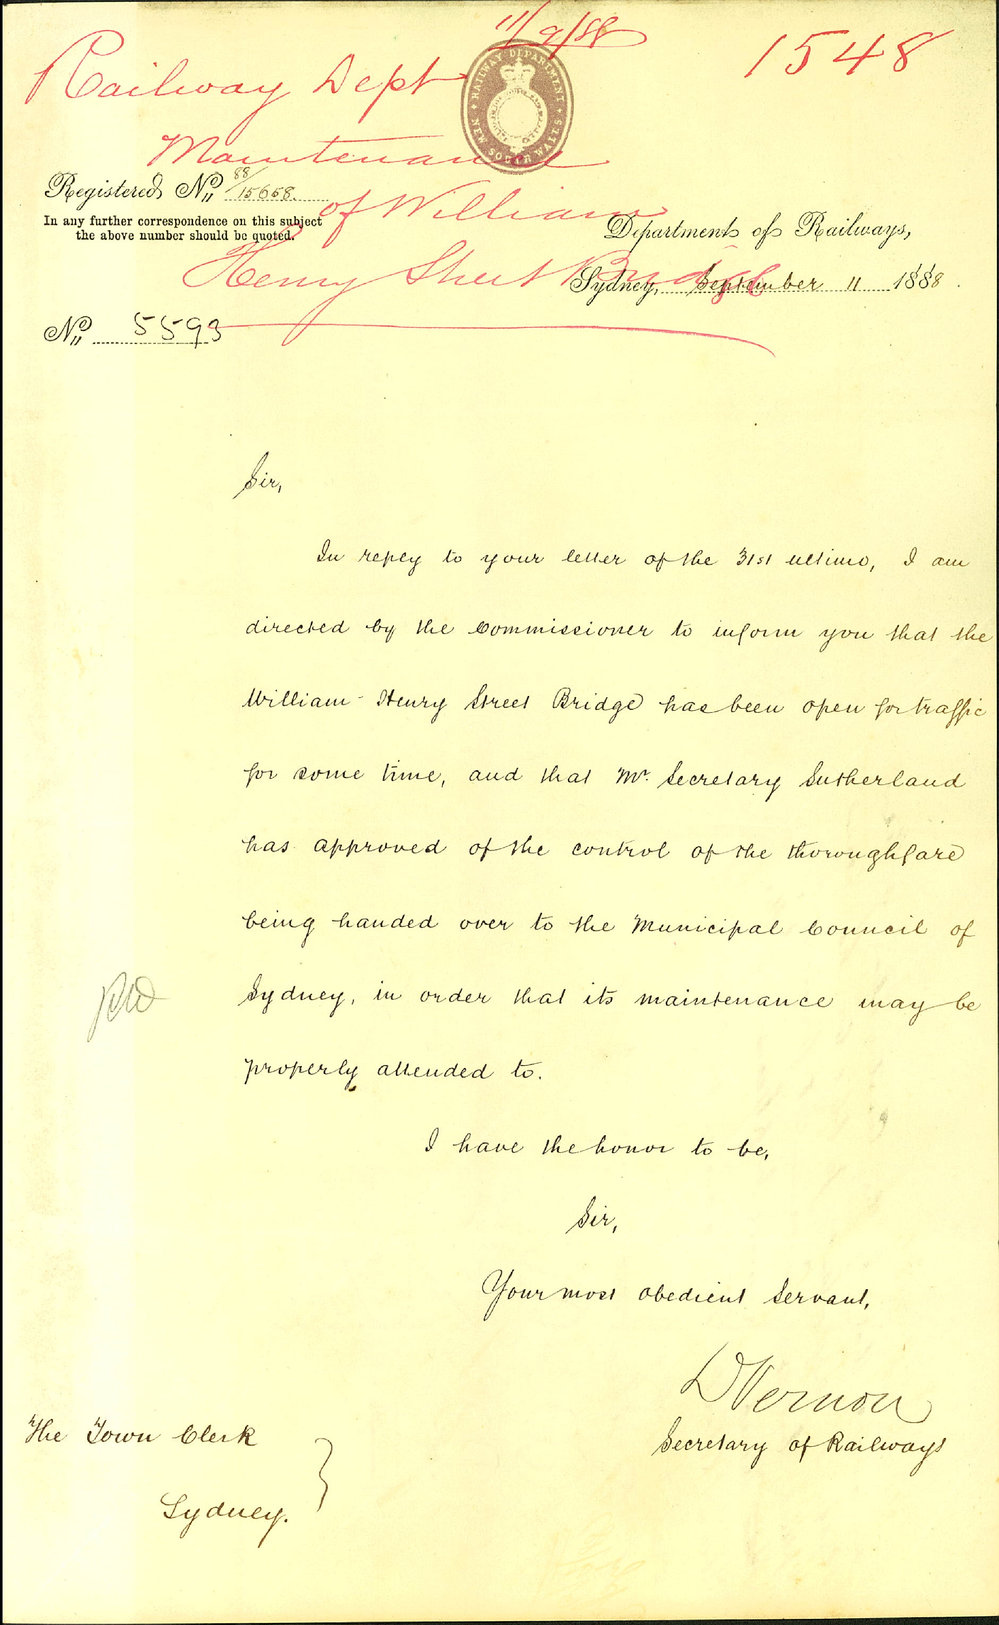 11/9/88
1548
Railway Dept
RAILWAY DEPARTMENT
NEW SOUTH WALES
Maintenance
of William
Henry Street Bridge
Registered No. 88/15658.
In any further correspondence on this subject
the above number should be quoted.
Department of Railways,
Sydney, September 11 1888.
No. 5593
Sir,
In reply to your letter of the 31st ultimo, I am
directed by the Commissioner to inform you that the
William-Henry Street Bridge has been open for traffic
for some time, and that Mr. Secretary Sutherland
has approved of the control of the thoroughfare
being handed over to the Municipal Council of
Sydney, in order that its maintenance may be
properly attended to.
I have the honor to be,
Sir,
Your most obedient Servant,
DVernon
Secretary of Railways
The Town Clerk
Sydney.